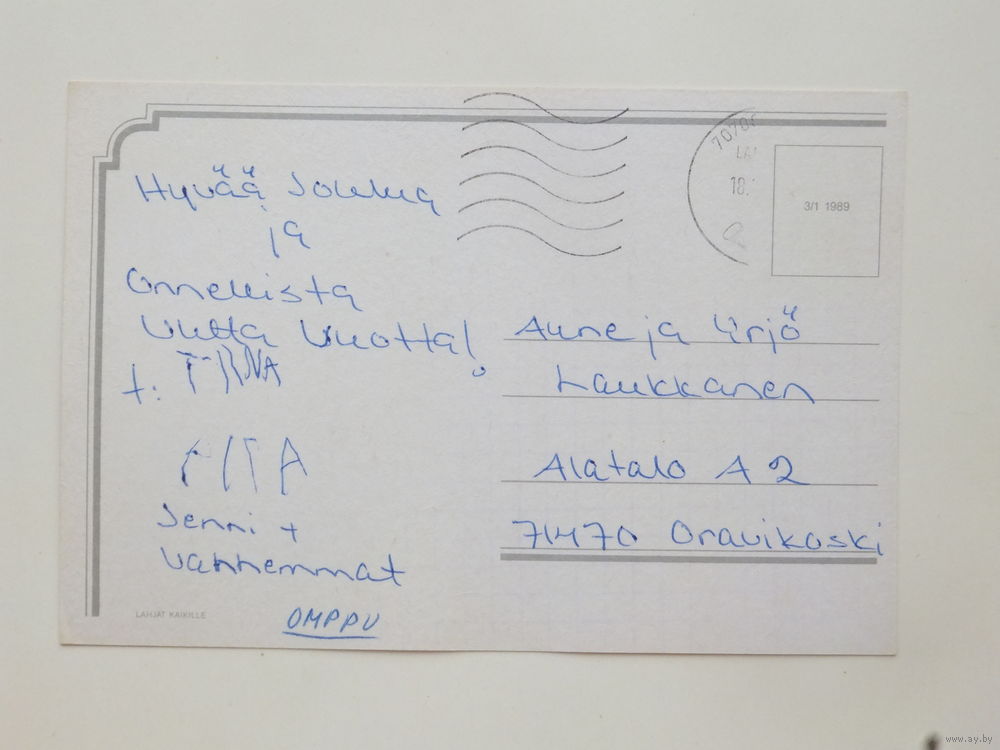 Hyvää Joulua
ja
Onnellista
Uutta Vuotta!
t: TIINA
Jenni +
vanhemmat
OMPPU
LAHJAT KAIKILLE
18.
3/1 1989
Aune ja Yrjö
Laukkanen
Alatalo A 2
71470 Oravikoski
www.ay.by